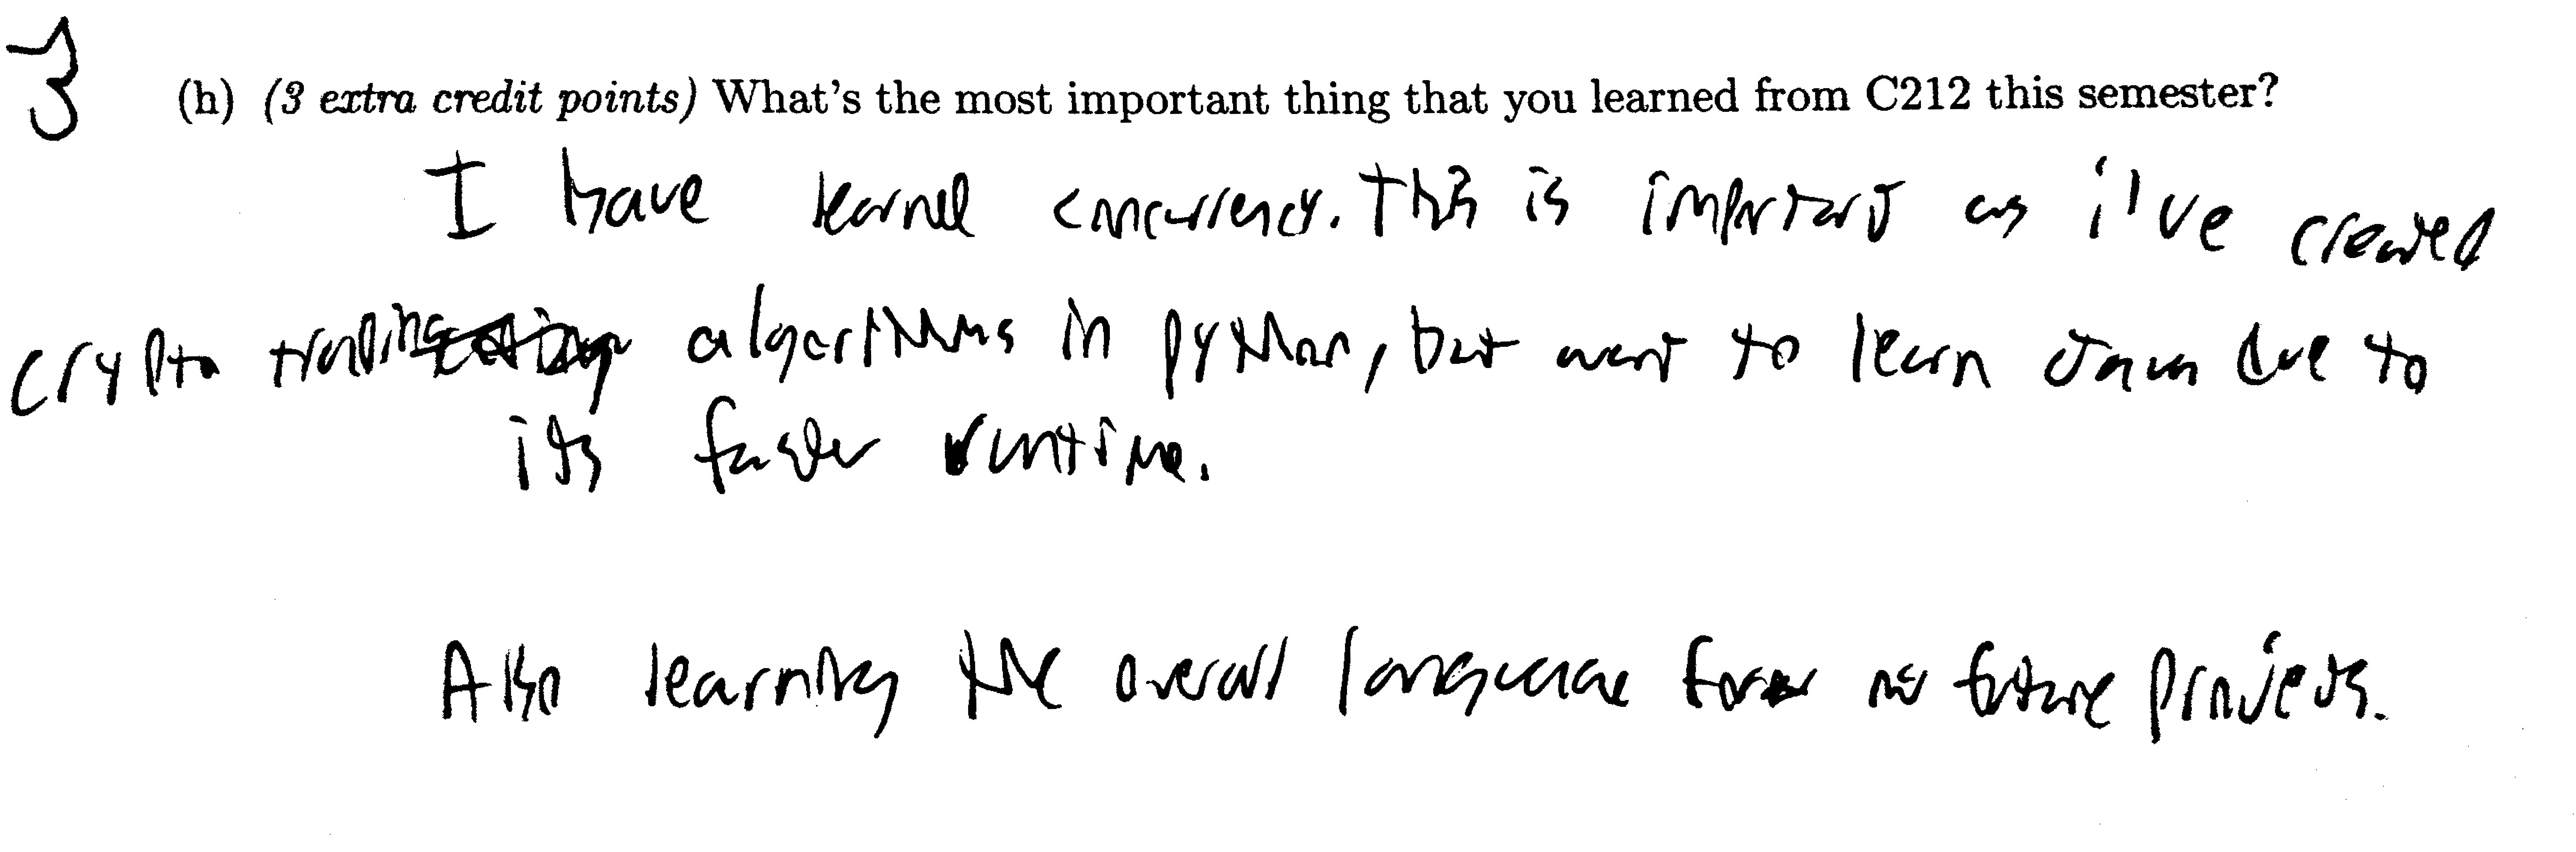 3 (h) (3 extra credit points) What's the most important thing that you learned from C212 this semester?
I have learned concurrency. This is important as i've created
crypto trading algorithms in python, but want to learn Java due to
its faster runtime.
Also learning the overall language for future projects.